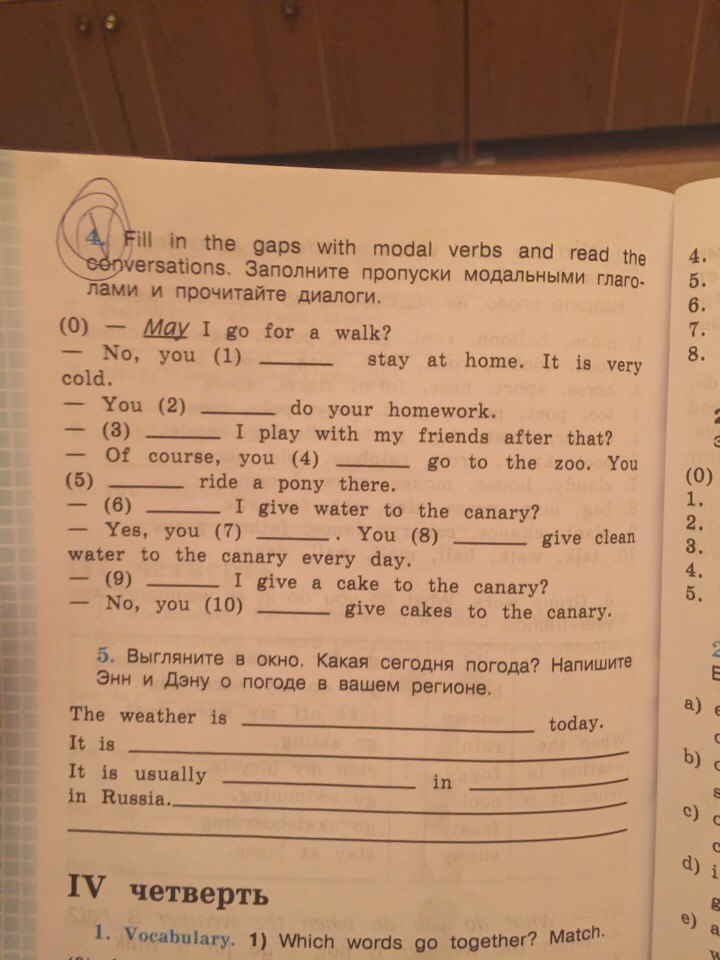 4. Fill in the gaps with modal verbs and read the
conversations. Заполните пропуски модальными глаго-
лами и прочитайте диалоги.
(0) — May I go for a walk?
— No, you (1) ______ stay at home. It is very
cold.
— You (2) ______ do your homework.
— (3) ______ I play with my friends after that?
— Of course, you (4) ______ go to the zoo. You
(5) ______ ride a pony there.
— (6) ______ I give water to the canary?
— Yes, you (7) ______. You (8) ______ give clean
water to the canary every day.
— (9) ______ I give a cake to the canary?
— No, you (10) ______ give cakes to the canary.
5. Выгляните в окно. Какая сегодня погода? Напишите
Энн и Дэну о погоде в вашем регионе.
The weather is ______ today.
It is ______
It is usually ______ in ______
in Russia. ______
IV четверть
1. Vocabulary. 1) Which words go together? Match.
4.
5.
6.
7.
8.
(0)
1.
2.
3.
4.
5.
a)
b)
c)
d)
e)